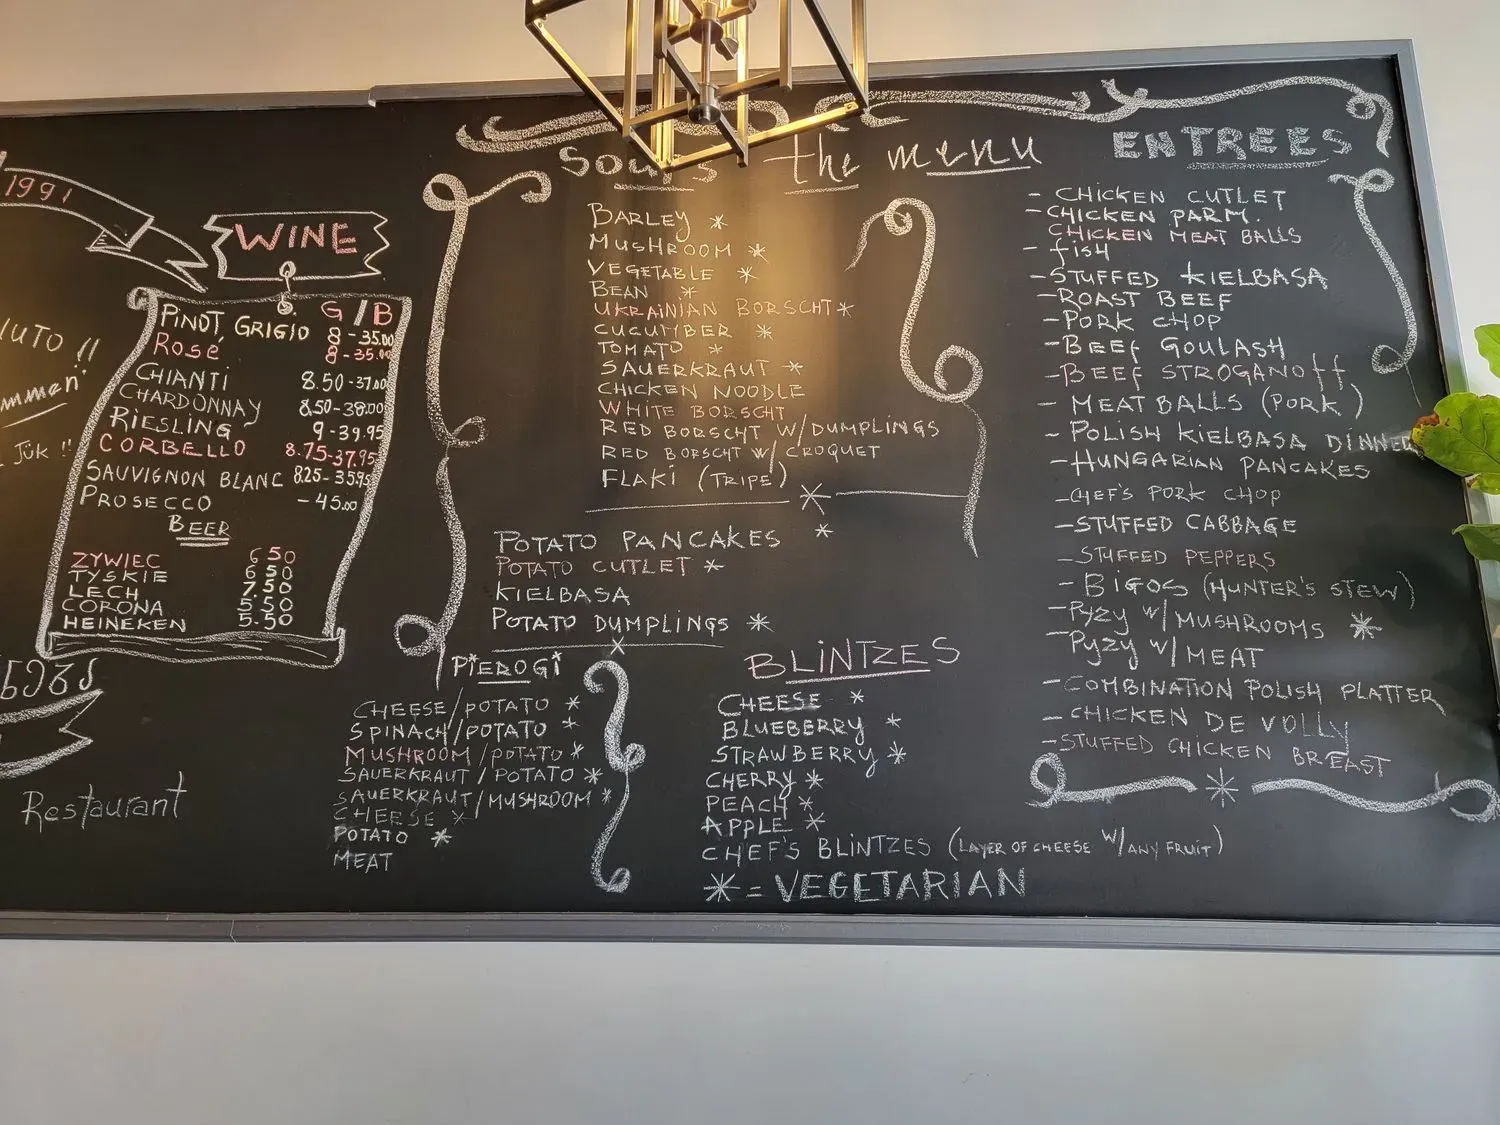 1991
WINE
G/B
PINOT GRIGIO 8-35.00
ROSÉ 8-35.00
CHIANTI 8.50-37.00
CHARDONNAY 8.50-38.00
RIESLING 9-39.95
CORBELLO 8.75-37.95
SAUVIGNON BLANC 8.25-35.95
PROSECCO -45.00
BEER
ZYWIEC 6.50
TYSKIE 6.50
LECH 7.50
CORONA 5.50
HEINEKEN 5.50
Restaurant
Soups
the menu
BARLEY *
MUSHROOM *
VEGETABLE *
BEAN *
UKRAINIAN BORSCHT *
CUCUMBER *
TOMATO *
SAUERKRAUT *
CHICKEN NOODLE
WHITE BORSCHT
RED BORSCHT W/DUMPLINGS
RED BORSCHT W/ CROQUET
FLAKI (TRIPE)
POTATO PANCAKES *
POTATO CUTLET *
KIELBASA
POTATO DUMPLINGS *
PIEROGI
CHEESE/POTATO *
SPINACH/POTATO *
MUSHROOM/POTATO *
SAUERKRAUT/POTATO *
SAUERKRAUT/MUSHROOM *
CHEESE *
POTATO *
MEAT
BLINTZES
CHEESE *
BLUEBERRY *
STRAWBERRY *
CHERRY *
PEACH *
APPLE *
CHEF'S BLINTZES (LAYER OF CHEESE W/ANY FRUIT)
* = VEGETARIAN
ENTREES
- CHICKEN CUTLET
- CHICKEN PARM.
CHICKEN MEAT BALLS
- fish
- STUFFED KIELBASA
- ROAST BEEF
- PORK CHOP
- BEEF GOULASH
- BEEF STROGANOFF
- MEAT BALLS (PORK)
- POLISH KIELBASA DINNER
- HUNGARIAN PANCAKES
- CHEF'S PORK CHOP
- STUFFED CABBAGE
- STUFFED PEPPERS
- BIGOS (HUNTER'S STEW)
- PYZY W/MUSHROOMS *
- PYZY W/MEAT
- COMBINATION POLISH PLATTER
- CHICKEN DE VOLLY
- STUFFED CHICKEN BREAST